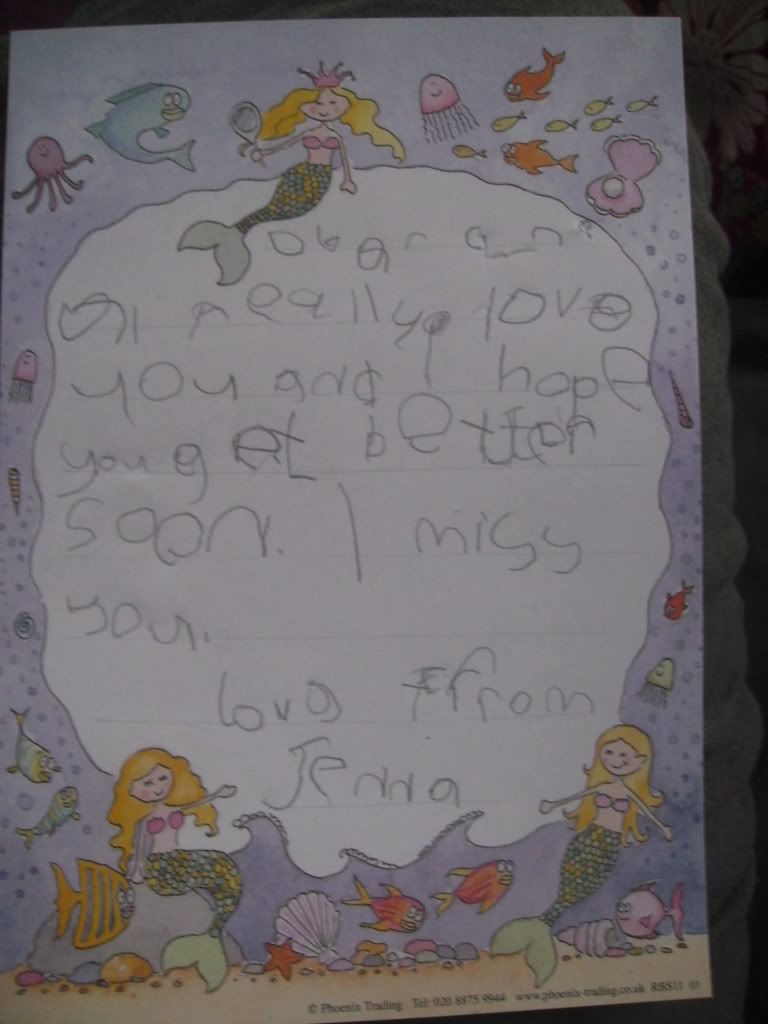 Dear
I really love
you and I hope
you get better
soon. I miss
you.
love from
Jenna
© Phoenix Trading Tel: 020 8875 9944 www.phoenix-trading.co.uk RBS11 03